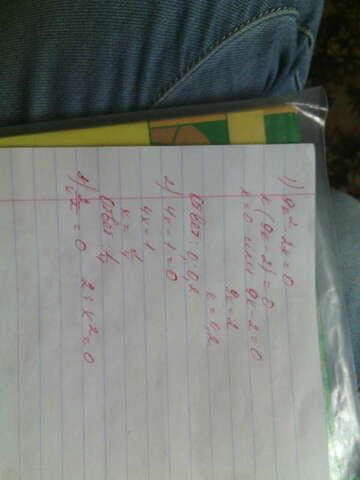 1) 9x² - 2x = 0
x(9x - 2) = 0
x = 0 или 9x - 2 = 0
9x = 2
x = 0,2
Ответ: 0; 0,2
2) 4x - 1 = 0
4x = 1
x = 1/4
Ответ: 1/4
= 0 2 : x² = 0